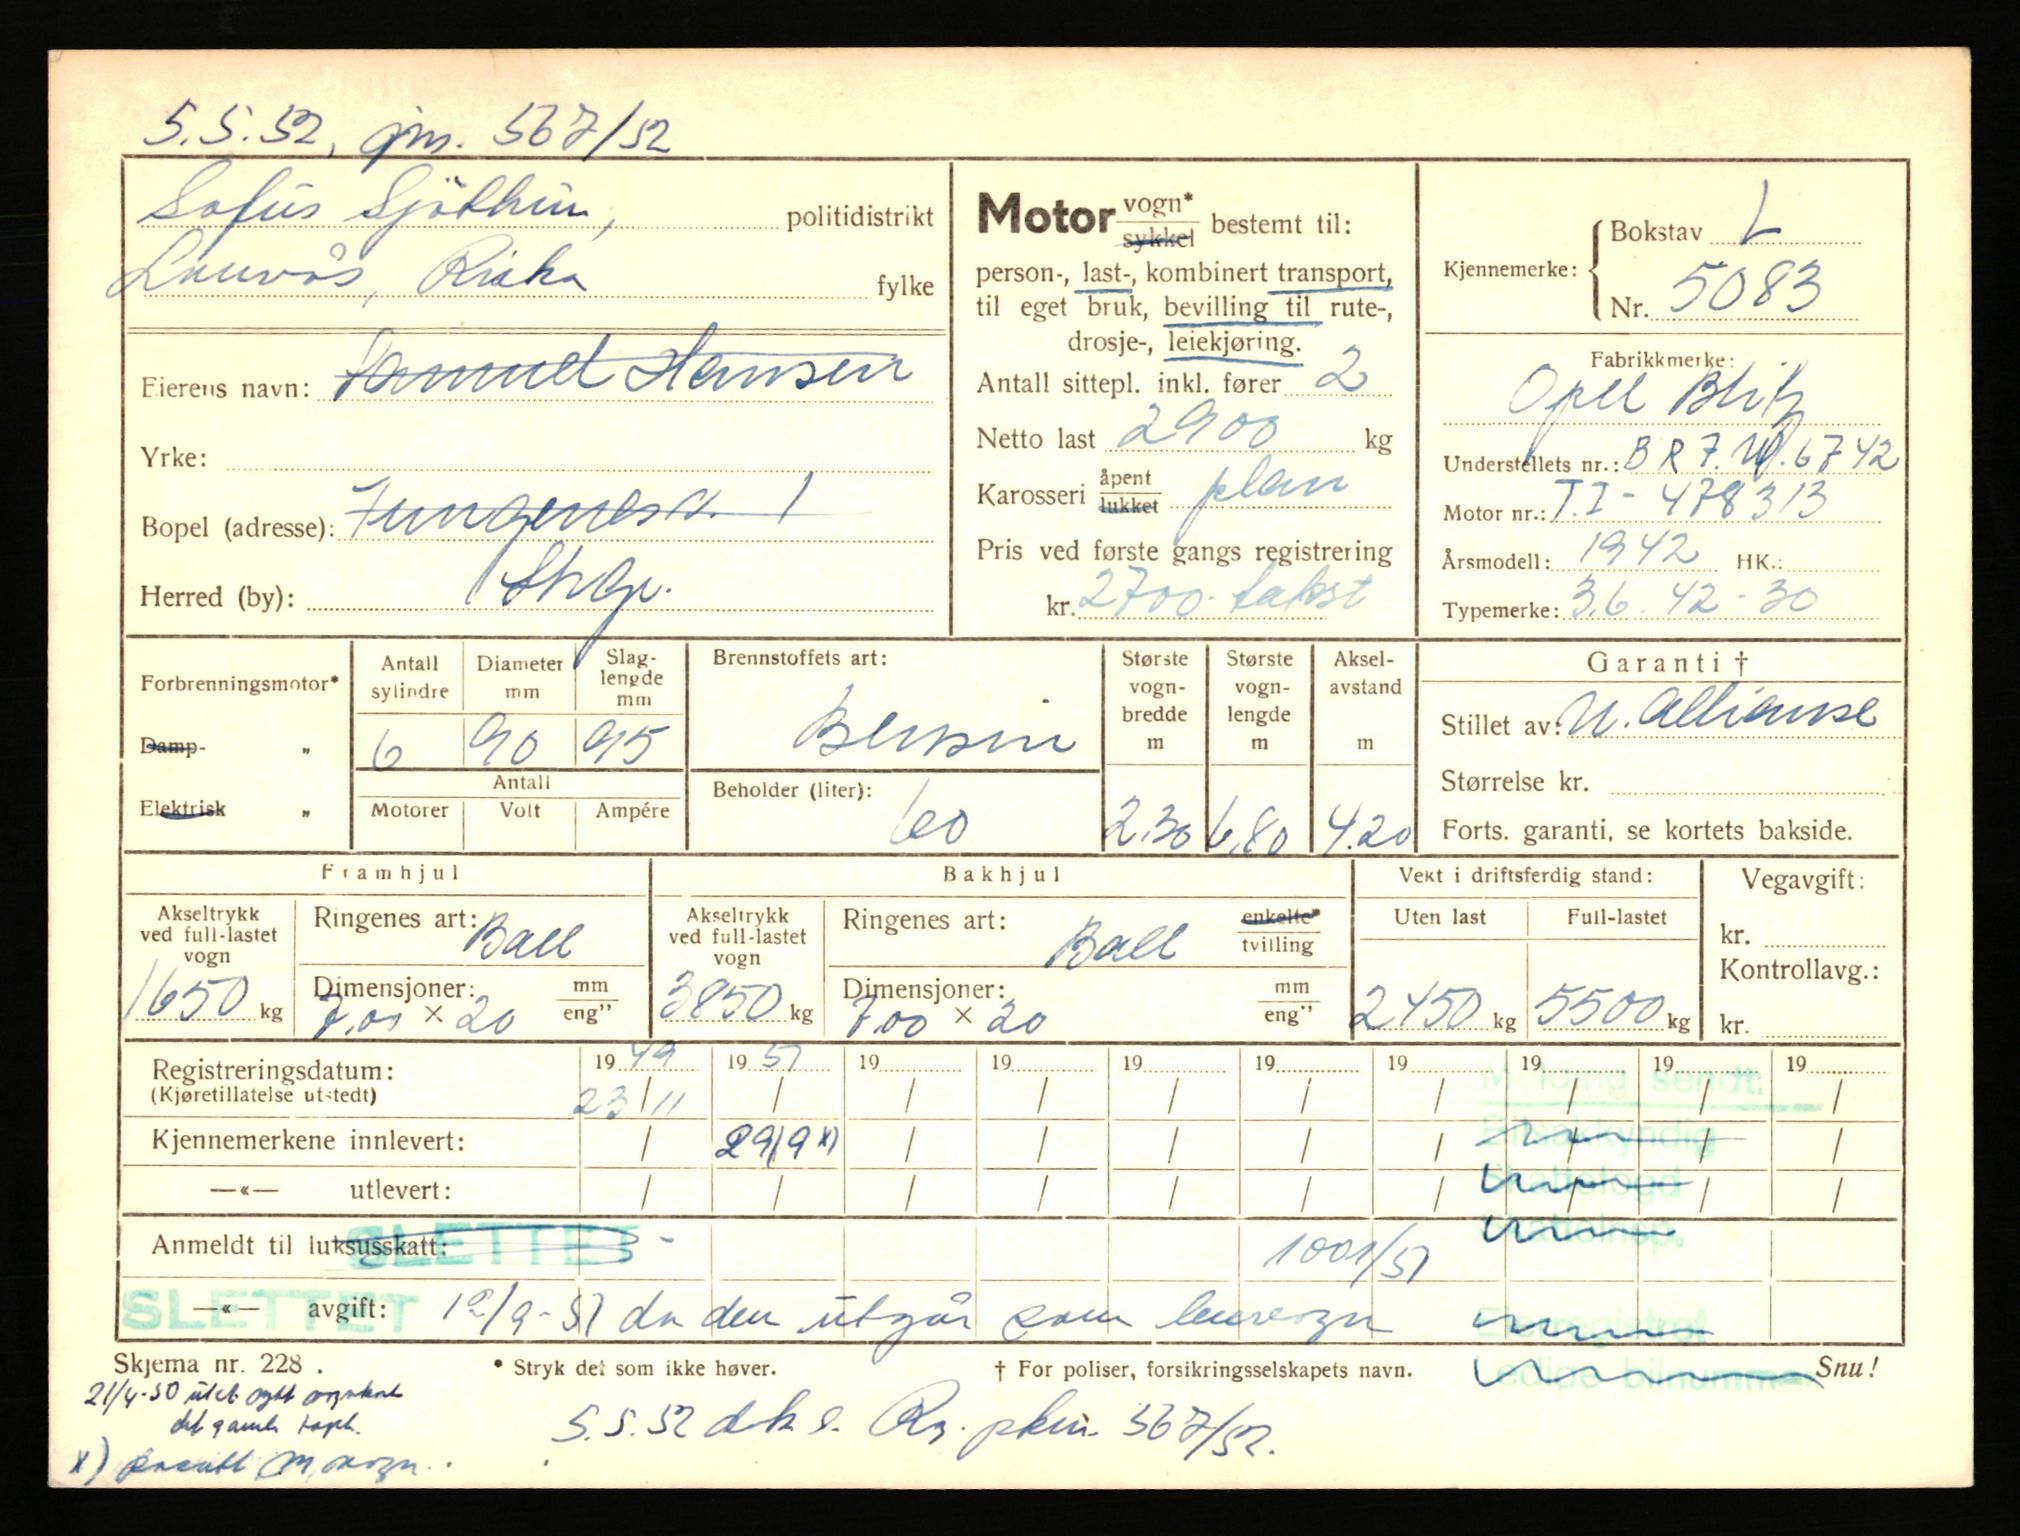 5.5.52, gjn. 567/52
Sofus Sjöthun, politidistrikt
Lauvås, Riska fylke
Eierens navn: Samuel Hansen
Yrke:
Bopel (adresse): Tungenesv. 1
Herred (by): Stvgr.
Motor vogn* / sykkel bestemt til:
person-, last-, kombinert transport,
til eget bruk, bevilling til rute-,
drosje-, leiekjøring.
Antall sittepl. inkl. fører 2
Netto last 2900 kg
Karosseri åpent / lukket plan
Pris ved første gangs registrering
kr. 2700.- takst
Kjennemerke: Bokstav L
Nr. 5083
Fabrikkmerke:
Opel Blitz
Understellets nr.: B R 7. W. 6742
Motor nr.: T.I - 478313
Årsmodell: 1942 HK.:
Typemerke: 3.6. 42 - 30
Forbrenningsmotor*
Damp- "
Elektrisk "
Antall sylindre 6
Diameter mm 90
Slag-lengde mm 95
Antall
Motorer Volt Ampére
Brennstoffets art:
Bensin
Beholder (liter):
60
Største vogn-bredde m 2.30
Største vogn-lengde m 6.80
Aksel-avstand m 4.20
Garanti †
Stillet av: N. Allianse
Størrelse kr.
Forts. garanti, se kortets bakside.
Framhjul
Akseltrykk ved full-lastet vogn
1650 kg
Ringenes art: Ball
Dimensjoner: mm / eng"
7.00 × 20
Bakhjul
Akseltrykk ved full-lastet vogn
3850 kg
Ringenes art: Ball enkelte* / tvilling
Dimensjoner: mm / eng"
7.00 × 20
Vekt i driftsferdig stand:
Uten last Full-lastet
2450 kg 5500 kg
Vegavgift:
kr.
Kontrollavg.:
kr.
Registreringsdatum: 1949 1951 19 19 19 19 19 19 19 19
(Kjøretillatelse utstedt) 23/11 / / / / / / / / /
Kjennemerkene innlevert: / 29/9 x) / / / / / / / /
—«— utlevert: / / / / / / / / / /
Melding sendt:
Bilsakkyndig
Skattefogd
Skatteinsp.
Eierregistret
Ledige bilnumme
Anmeldt til luksusskatt: SLETTET 1001/51
SLETTET —«— avgift: 12/9-51 da den utgår som leievogn
Skjema nr. 228. * Stryk det som ikke høver. † For poliser, forsikringsselskapets navn. Snu!
21/4-50 utst nytt vognkort
det gamle tapt.
5.5.52 Rg. 567/52.
x)